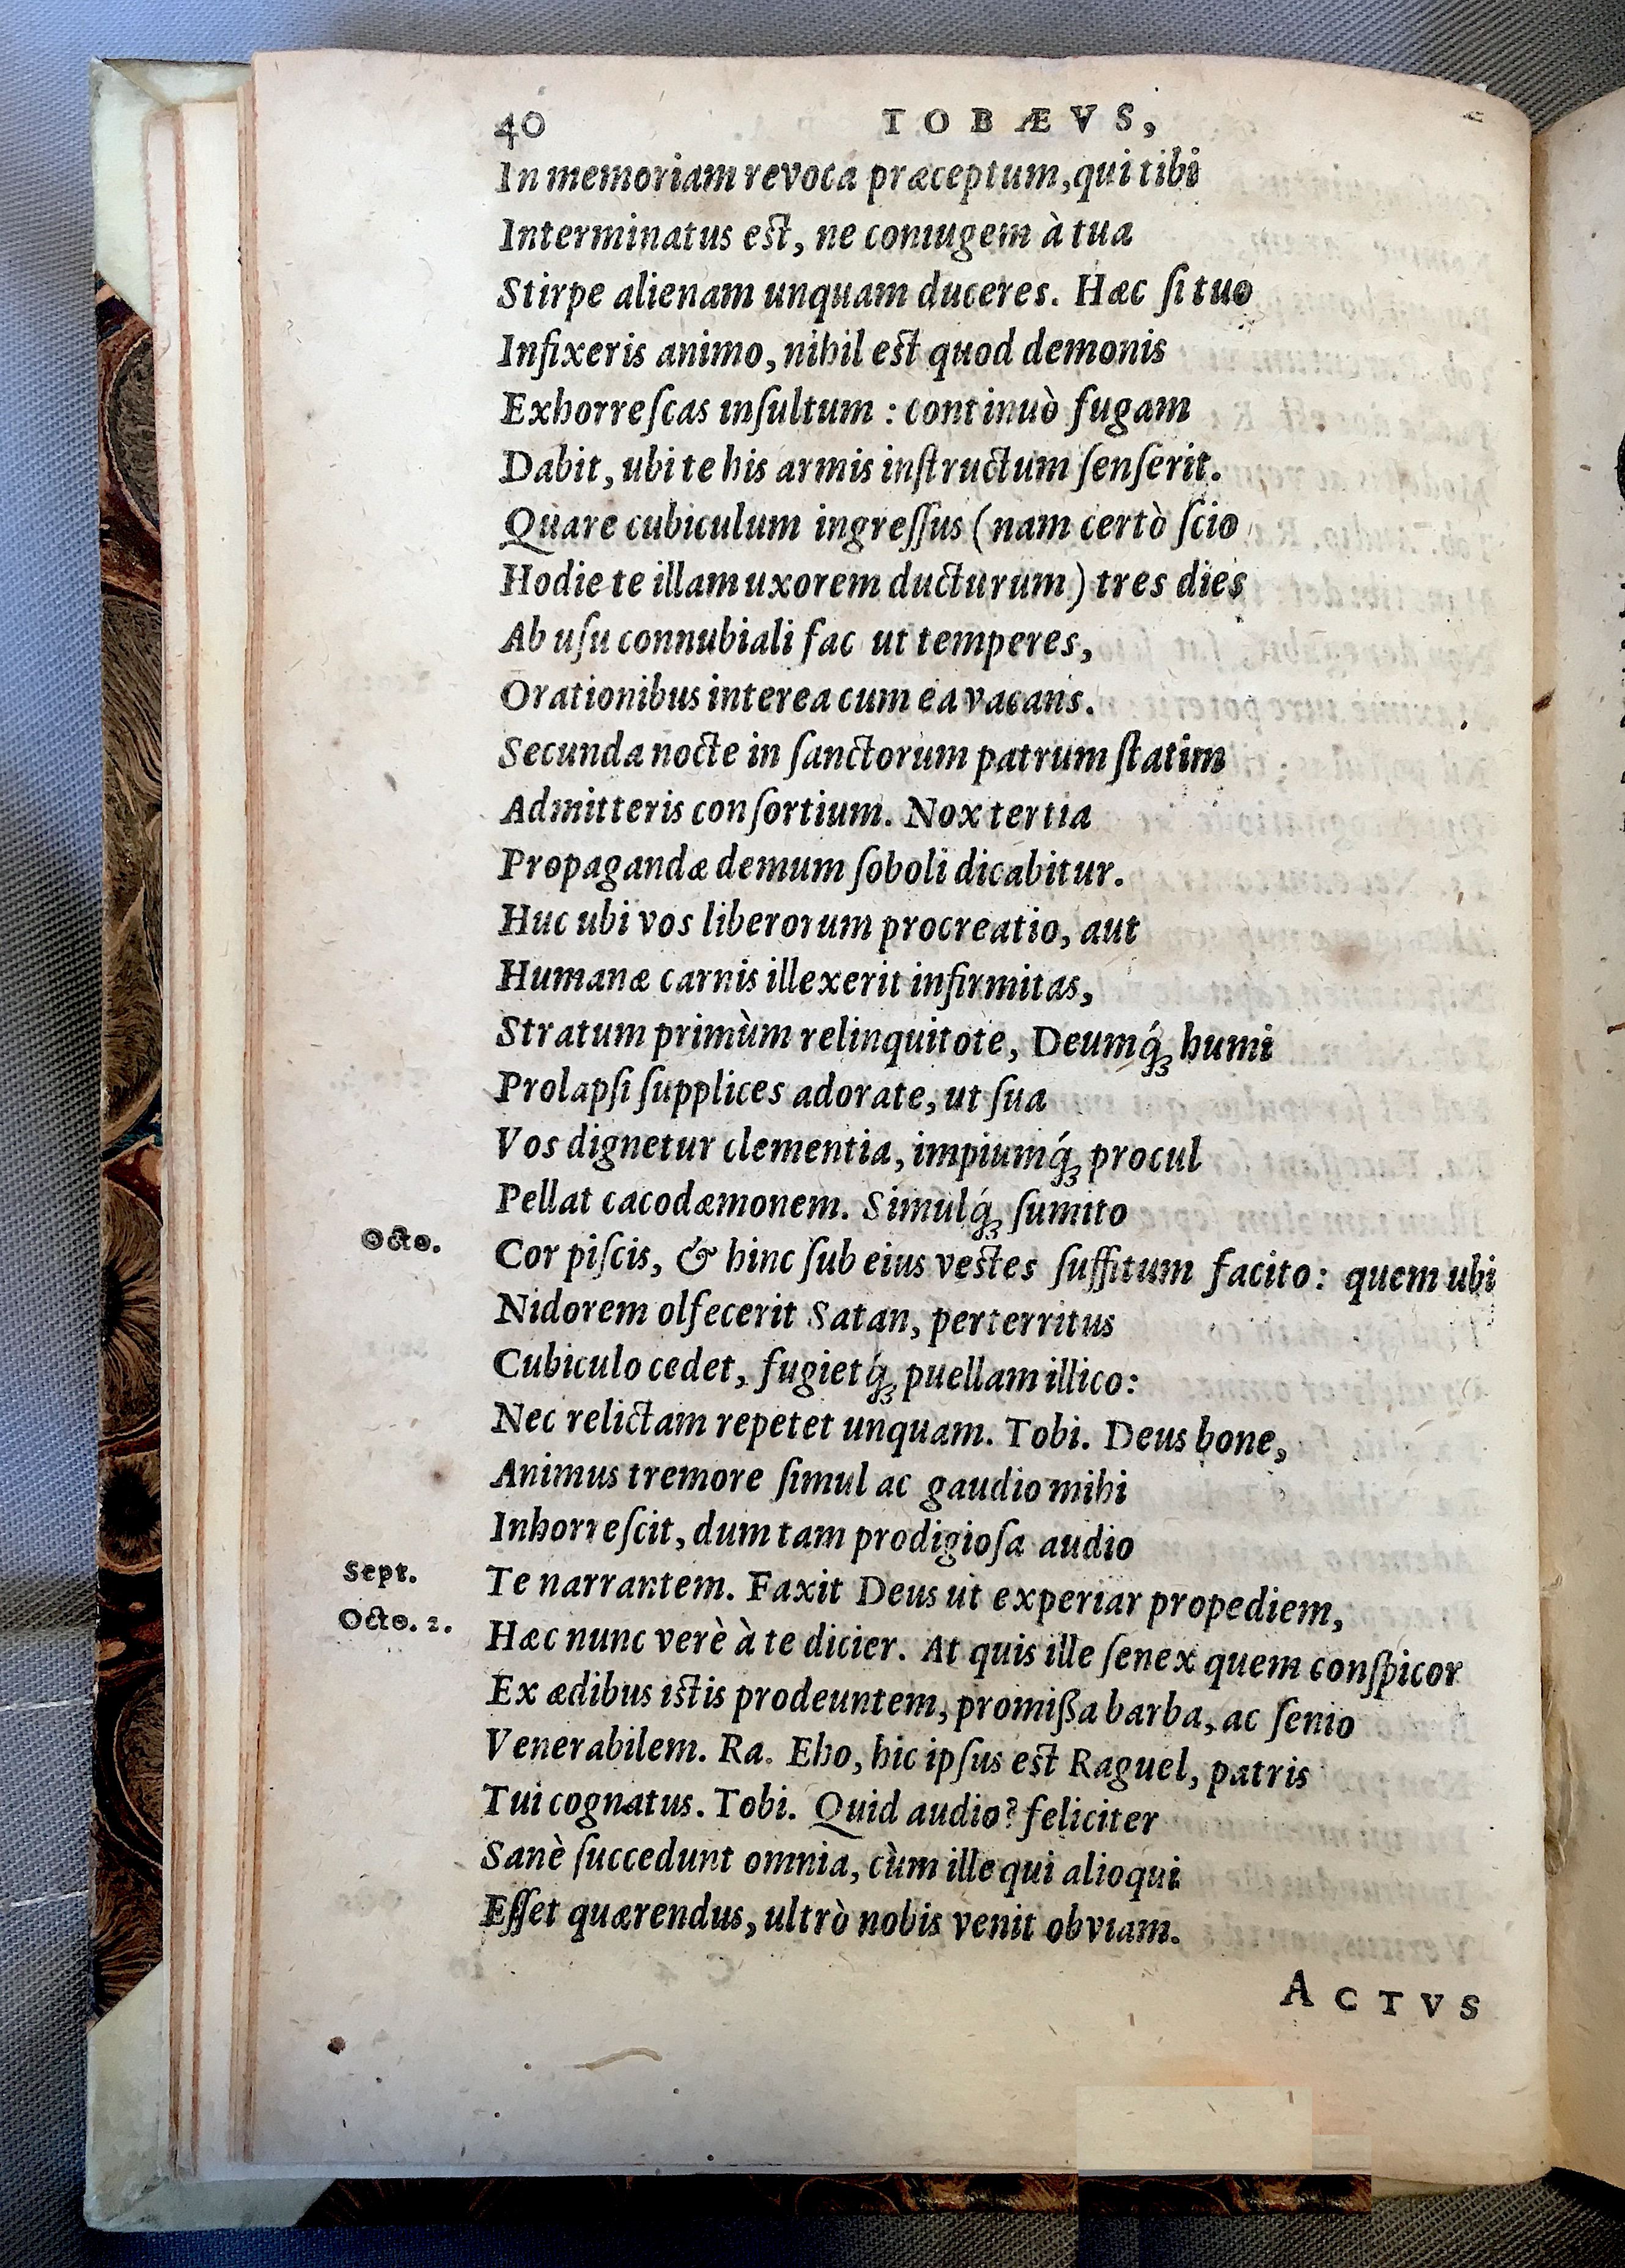 40 TOBÆVS,
In memoriam revoca præceptum, qui tibi
Interminatus est, ne coniugem à tua
Stirpe alienam unquam duceres. Hæc ſi tuo
Infixeris animo, nihil est quod demonis
Exhorreſcas inſultum : continuò fugam
Dabit, ubi te his armis inſtructum ſenſerit.
Quare cubiculum ingreſſus (nam certò ſcio
Hodie te illam uxorem ducturum) tres dies
Ab uſu connubiali fac ut temperes,
Orationibus interea cum ea vacans.
Secunda nocte in ſanctorum patrum ſtatim
Admitteris conſortium. Nox tertia
Propagandæ demum ſoboli dicabitur.
Huc ubi vos liberorum procreatio, aut
Humanæ carnis illexerit infirmitas,
Stratum primùm relinquitote, Deumq́ꝫ humi
Prolapſi ſupplices adorate, ut ſua
Vos dignetur clementia, impiumq́ꝫ procul
Pellat cacodæmonem. Simulq́ꝫ ſumito
Octo. Cor piſcis, & hinc ſub eius vestes ſuffitum facito: quem ubi
Nidorem olfecerit Satan, perterritus
Cubiculo cedet, fugietq́ꝫ puellam illico:
Nec relictam repetet unquam. Tobi. Deus bone,
Animus tremore ſimul ac gaudio mihi
Inhorreſcit, dum tam prodigioſa audio
Sept. Te narrantem. Faxit Deus ut experiar propediem,
Octo. 2. Hæc nunc verè à te dicier. At quis ille ſenex quem conſpicor
Ex ædibus istis prodeuntem, promißa barba, ac ſenio
Venerabilem. Ra. Eho, hic ipſus est Raguel, patris
Tui cognatus. Tobi. Quid audio? feliciter
Sanè ſuccedunt omnia, cùm ille qui alioqui
Eſſet quærendus, ultrò nobis venit obviam.
ACTVS